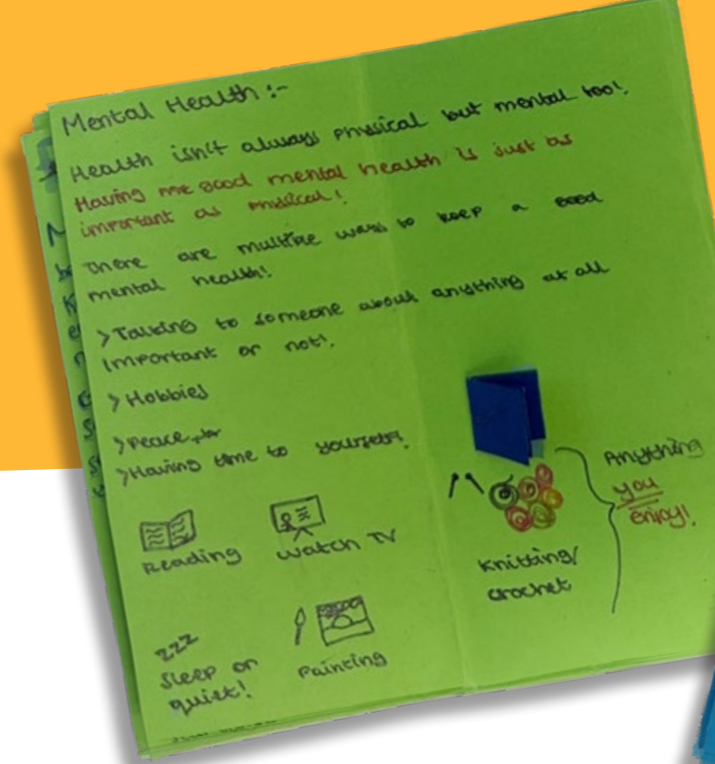 Mental Health :-
Health isn't always physical but mental too!
Having good mental health is just as
important as physical!
There are multiple ways to keep a good
mental health!
> Talking to someone about anything at all
important or not!
> Hobbies
> Peace
> Having time to yourself!
Reading
Watch TV
Knitting/
crochet
Anything
you
enjoy!
zzz
Sleep or
quiet!
Painting